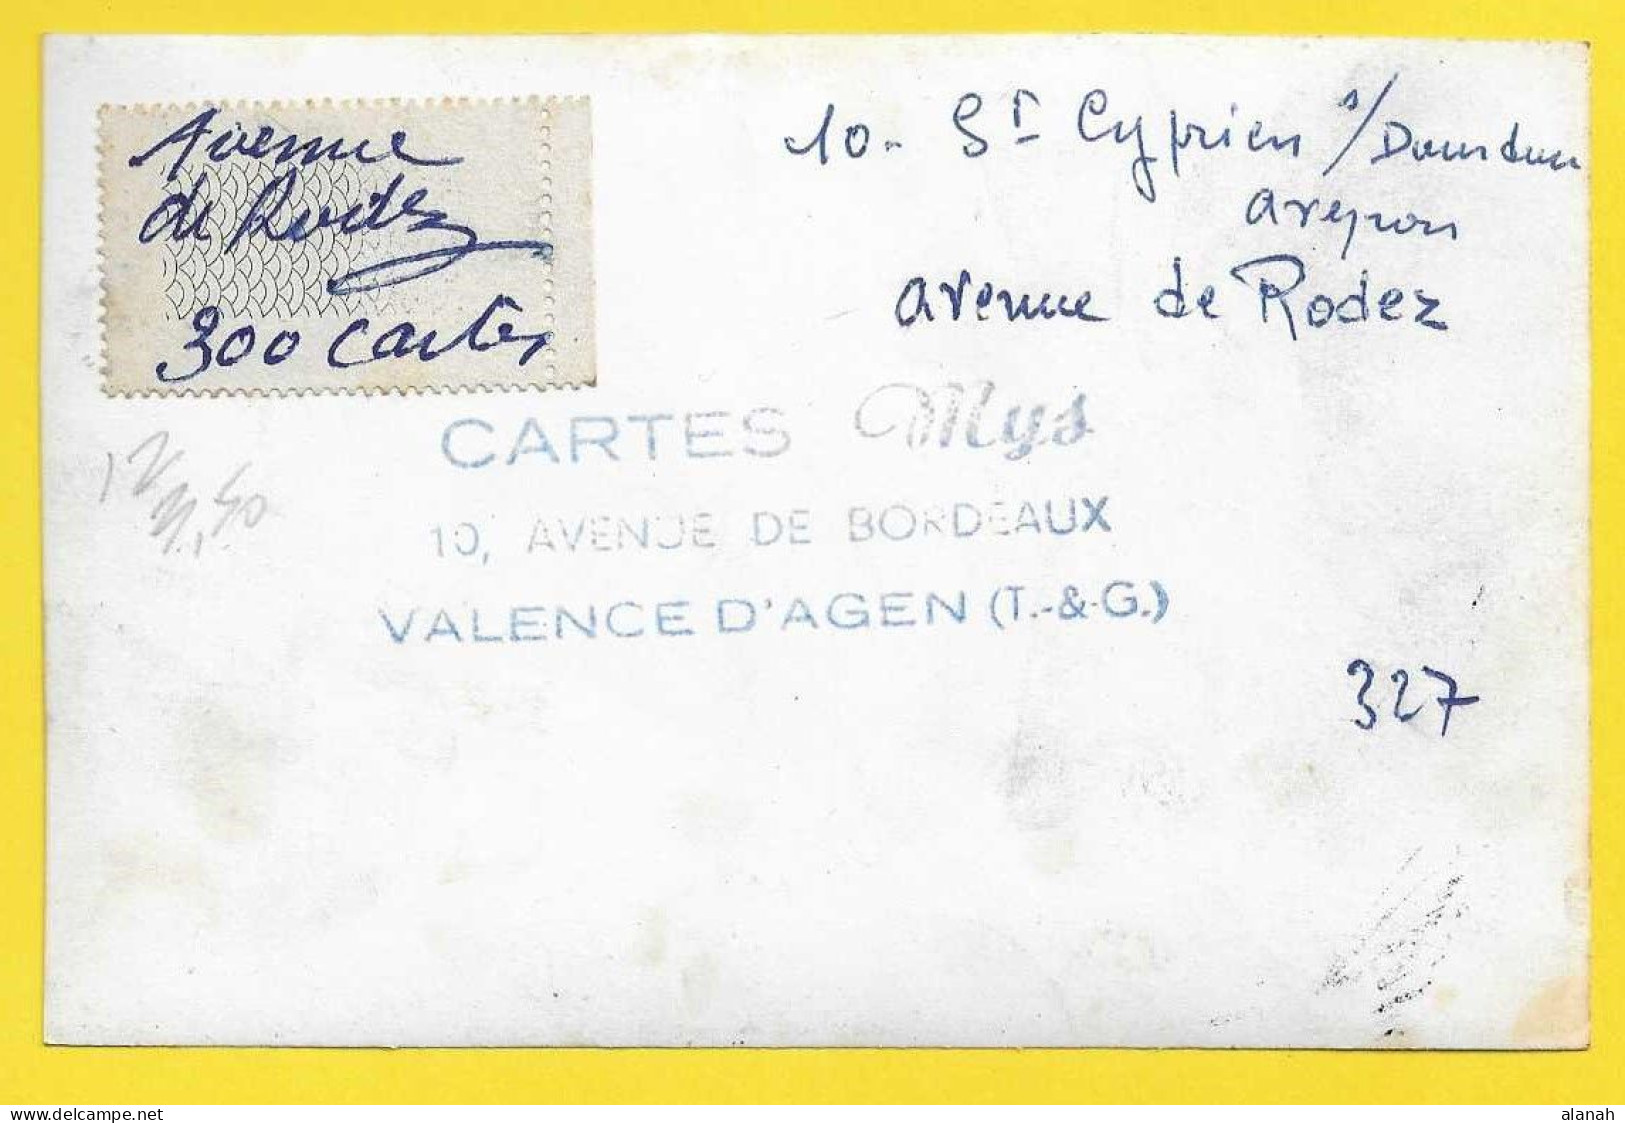 Avenue
de Rodez
300 cartes
10. St Cyprien s/Dourdou
Aveyron
Avenue de Rodez
CARTES Mys
10, AVENUE DE BORDEAUX
VALENCE D'AGEN (T.-&-G.)
327
alanah